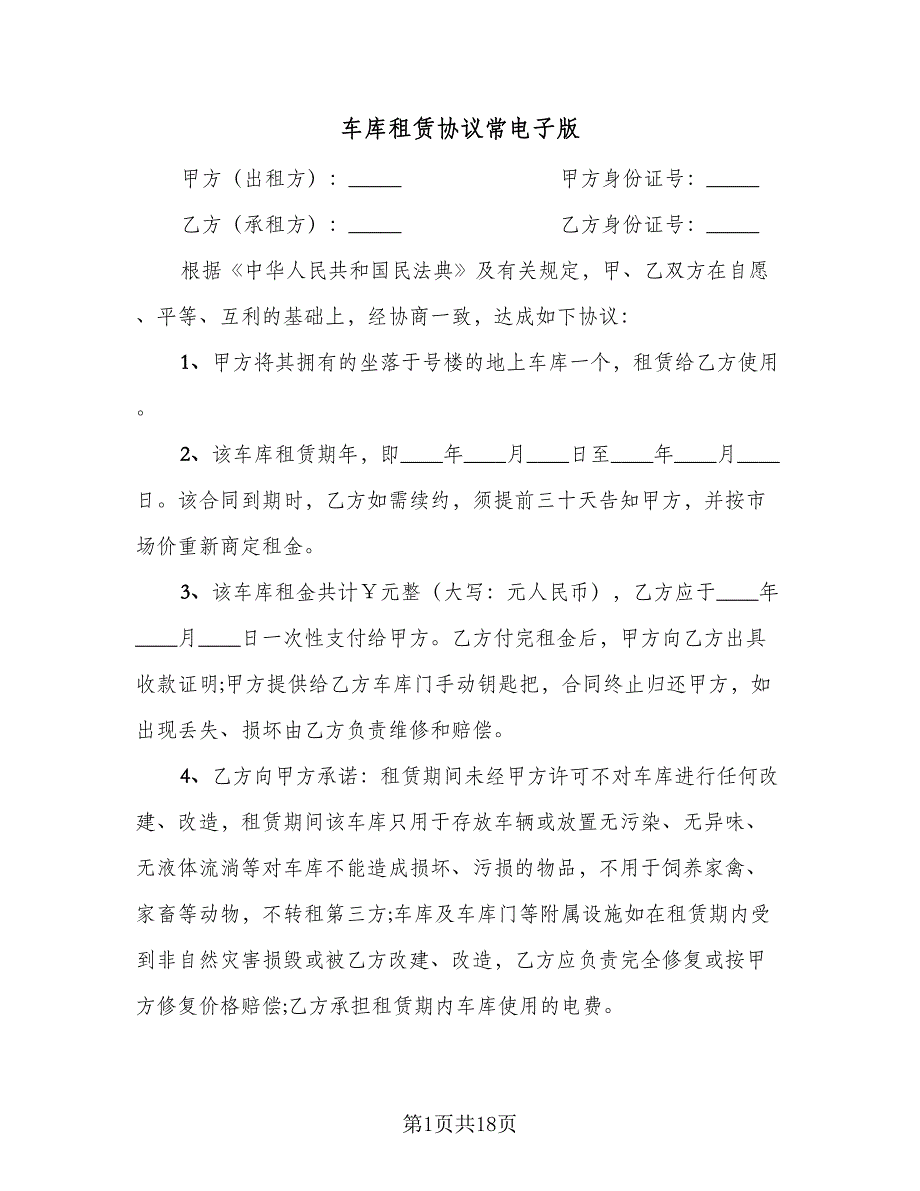 车库租赁协议常电子版
甲方（出租方）：_____ 甲方身份证号：_____
乙方（承租方）：_____ 乙方身份证号：_____
根据《中华人民共和国民法典》及有关规定，甲、乙双方在自愿
、平等、互利的基础上，经协商一致，达成如下协议：
1、甲方将其拥有的坐落于号楼的地上车库一个，租赁给乙方使用
。
2、该车库租赁期年，即____年____月____日至____年____月____
日。该合同到期时，乙方如需续约，须提前三十天告知甲方，并按市
场价重新商定租金。
3、该车库租金共计￥元整（大写：元人民币），乙方应于____年
____月____日一次性支付给甲方。乙方付完租金后，甲方向乙方出具
收款证明;甲方提供给乙方车库门手动钥匙把，合同终止归还甲方，如
出现丢失、损坏由乙方负责维修和赔偿。
4、乙方向甲方承诺：租赁期间未经甲方许可不对车库进行任何改
建、改造，租赁期间该车库只用于存放车辆或放置无污染、无异味、
无液体流淌等对车库不能造成损坏、污损的物品，不用于饲养家禽、
家畜等动物，不转租第三方;车库及车库门等附属设施如在租赁期内受
到非自然灾害损毁或被乙方改建、改造，乙方应负责完全修复或按甲
方修复价格赔偿;乙方承担租赁期内车库使用的电费。
第1页共18页